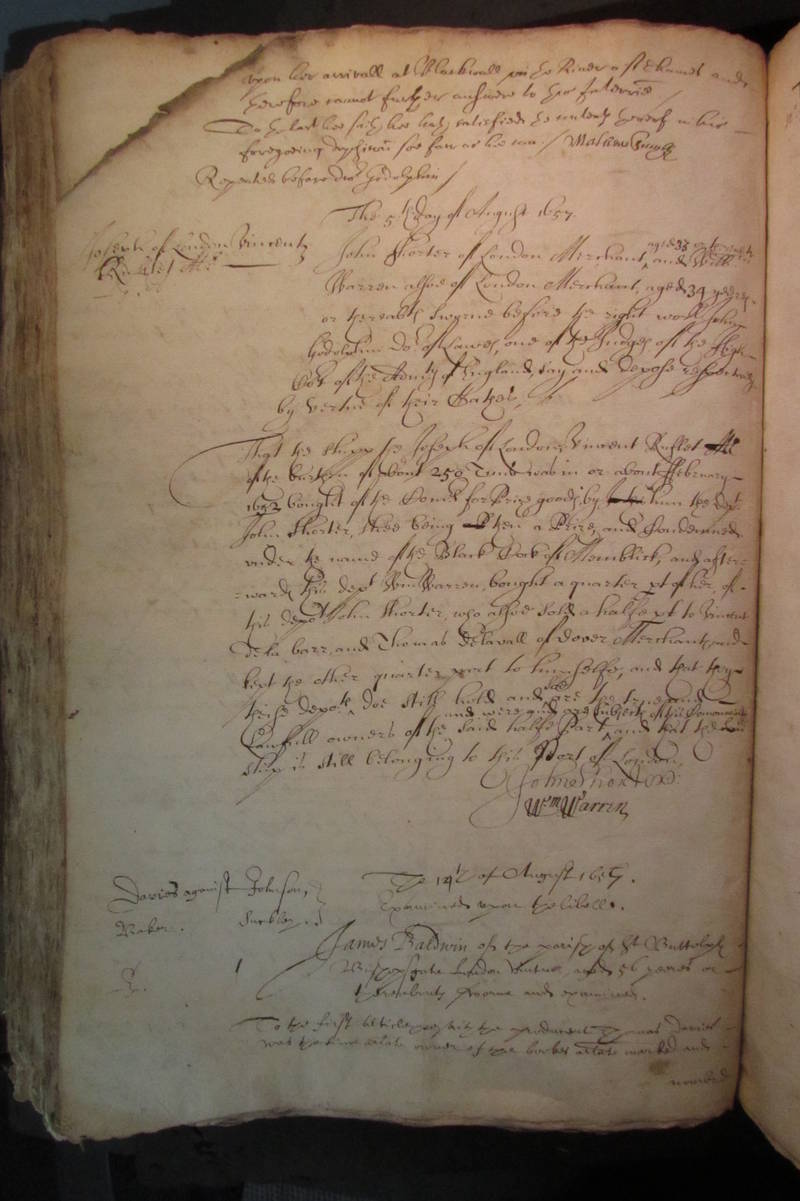 upon her arrivall at Blackwall in the River of Thames and
therefore cannot further answere to the Interrie
To the last hee saith hee hath satisfied the contents thereof in his
foregoeing deposition soe farr as hee can./
Repeated before doctor Godolphin/
The 5th day of August 1657.
Joseph of London Vincent
John Shorter of London Merchant, aged 33 yeares and William
Warren alsoe of London Merchant, aged 34 yeares
or thereabouts sworne before the right worll John
Godolphin Dor of Lawes, one of the Judges of the high
Cort of the Admlty of England, say and depose respectively
by vertue of their Oathes,
That the shipp the Joseph of London, Vincent
of the burthen of about 250 Tunns was in or about ffebruary
1653 bought of the Comrs for Prize goods by him the dept
John Shorter, shee being then a Prize, and Condemned
under the name of the Black Cock of Memblick, and after=
=wards this dept Wm Warren, bought a quarter pt of her, of
this dept John Shorter, who alsoe sold a halfe pt to Vincent
Dela barr, and Thomas Delavall of Dover Merchants, and
kept the other quarter part to himselfe, and that they
theise depots doe still hold and are the true and
Lawfull owners of the said halfe part and were and are subjects of this Comonwealth and that the said
shipp is still belonging to this Port of London,
John Shorter:
Wm Warren
Davies against Johnson,
Baker.
Suckley.
The 14th of August 1657.
Examined upon the libell.
1
James Baldwin of the parish of St Buttolph
Bishopsgate London aged 56 yeares or
thereabouts sworne and examined.
To the first article that the producent Thomas Davies
was the time arlate owner of the barke arlate marked and
numbred